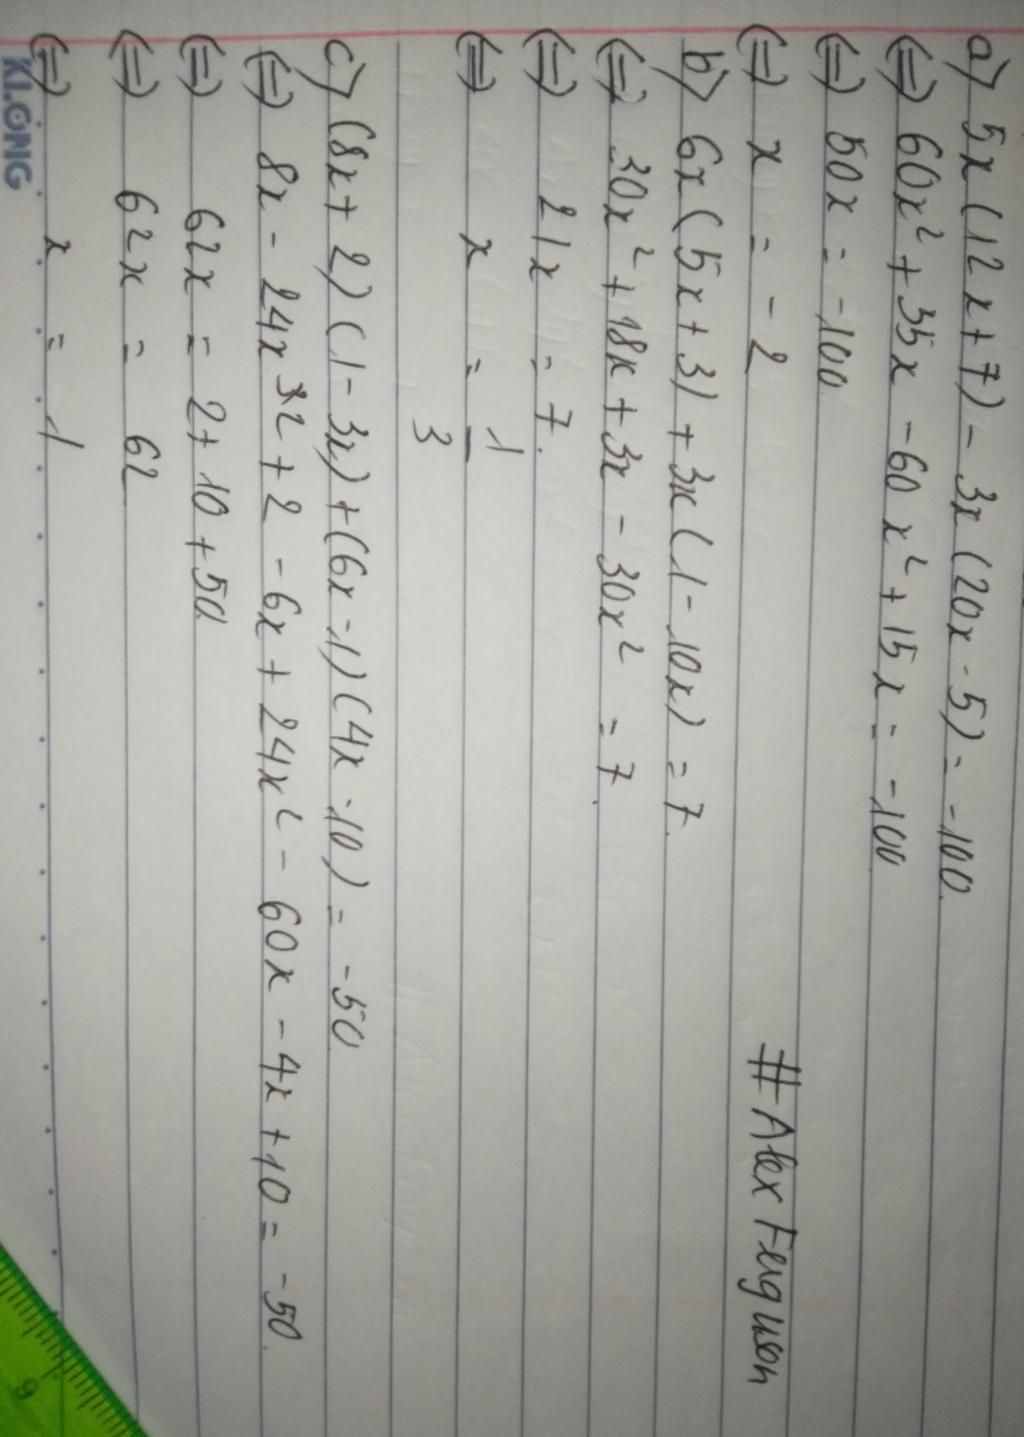 a) 5x(12x+7) - 3x(20x-5) = -100.
(=) 60x² + 35x - 60x² + 15x = -100
(=) 50x = -100
(=) x = -2
# Alex Ferguson
b) 6x(5x+3) + 3x(1-10x) = 7.
(=) 30x² + 18x + 3x - 30x² = 7.
(=) 21x = 7.
(=) x = 1/3
c) (8x+2)(1-3x) + (6x-1)(4x-10) = -50
(=) 8x - 24x² + 2 - 6x + 24x² - 60x - 4x + 10 = -50.
(=) 62x = 2 + 10 + 50.
(=) 62x = 62
(=) x = 1
KLONG
9